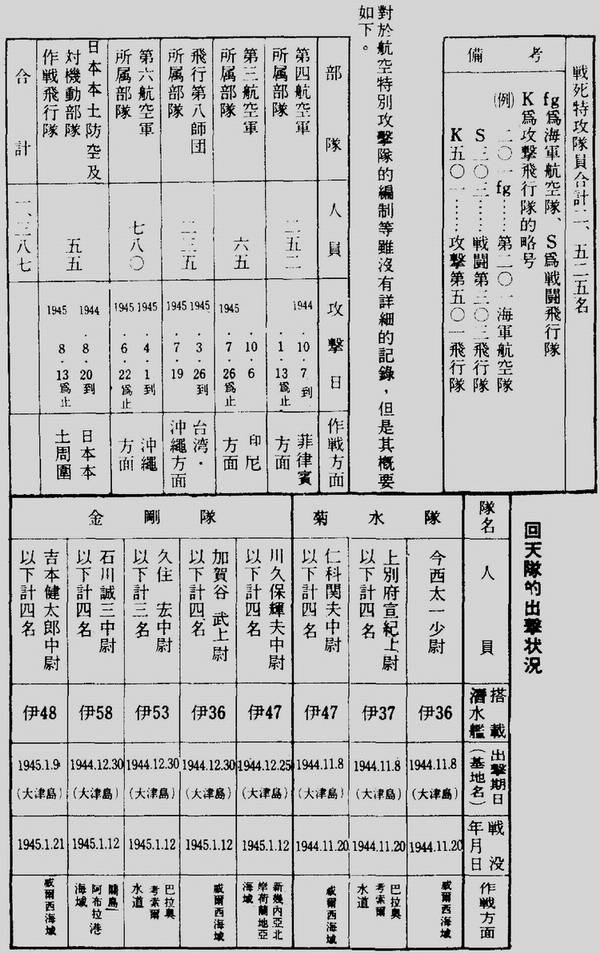 戦死特攻隊員合計二、五二五名
備考
fg爲海軍航空隊、S爲戦闘飛行隊
K爲攻撃飛行隊的略号
(例) 二〇一fg……第二〇一海軍航空隊
S三〇三……戦闘第三〇三飛行隊
K五〇一……攻撃第五〇一飛行隊
對於航空特別攻擊隊的編制等雖沒有詳細的記錄，但是其概要
如下。
部隊
人員
攻撃日
作戦方面
第四航空軍
所属部隊
二五二
1944・10・7到
1・13爲止
菲律賓
方面
第三航空軍
所属部隊
六五
10・6
1945・7・26爲止
印尼
方面
飛行第八師団
所属部隊
二三五
1945・3・26到
1945・7・19
台湾・
沖繩方面
第六航空軍
所属部隊
七八〇
1945・4・1到
1945・6・22爲止
沖繩
方面
日本本土防空及
対機動部隊
作戦飛行隊
五五
1944・8・20到
1945・8・13爲止
日本本
土周圍
合計
一、三八七
回天隊的出撃状況
隊名
人員
搭載
潛水艦
出撃期日
(基地名)
戦没
年月日
作戦方面
菊水隊
今西太一少尉
伊36
1944.11.8
(大津島)
1944.11.20
威爾西海域
上別府宣紀上尉
以下計四名
伊37
1944.11.8
(大津島)
1944.11.20
巴拉奥
考索爾
水道
仁科関夫中尉
以下計四名
伊47
1944.11.8
(大津島)
1944.11.20
威爾西海域
金剛隊
川久保輝夫中尉
以下計四名
伊47
1944.12.25
(大津島)
1945.1.12
新幾内亞北
岸荷蘭地亞
海域
加賀谷 武上尉
以下計四名
伊36
1944.12.30
(大津島)
1945.1.12
威爾西海域
久住 宏中尉
以下計三名
伊53
1944.12.30
(大津島)
1945.1.12
巴拉奥
考索爾
水道
石川誠三中尉
以下計四名
伊58
1944.12.30
(大津島)
1945.1.12
關島
阿布拉港
海域
吉本健太郎中尉
以下計四名
伊48
1945.1.9
(大津島)
1945.1.21
威爾西海域